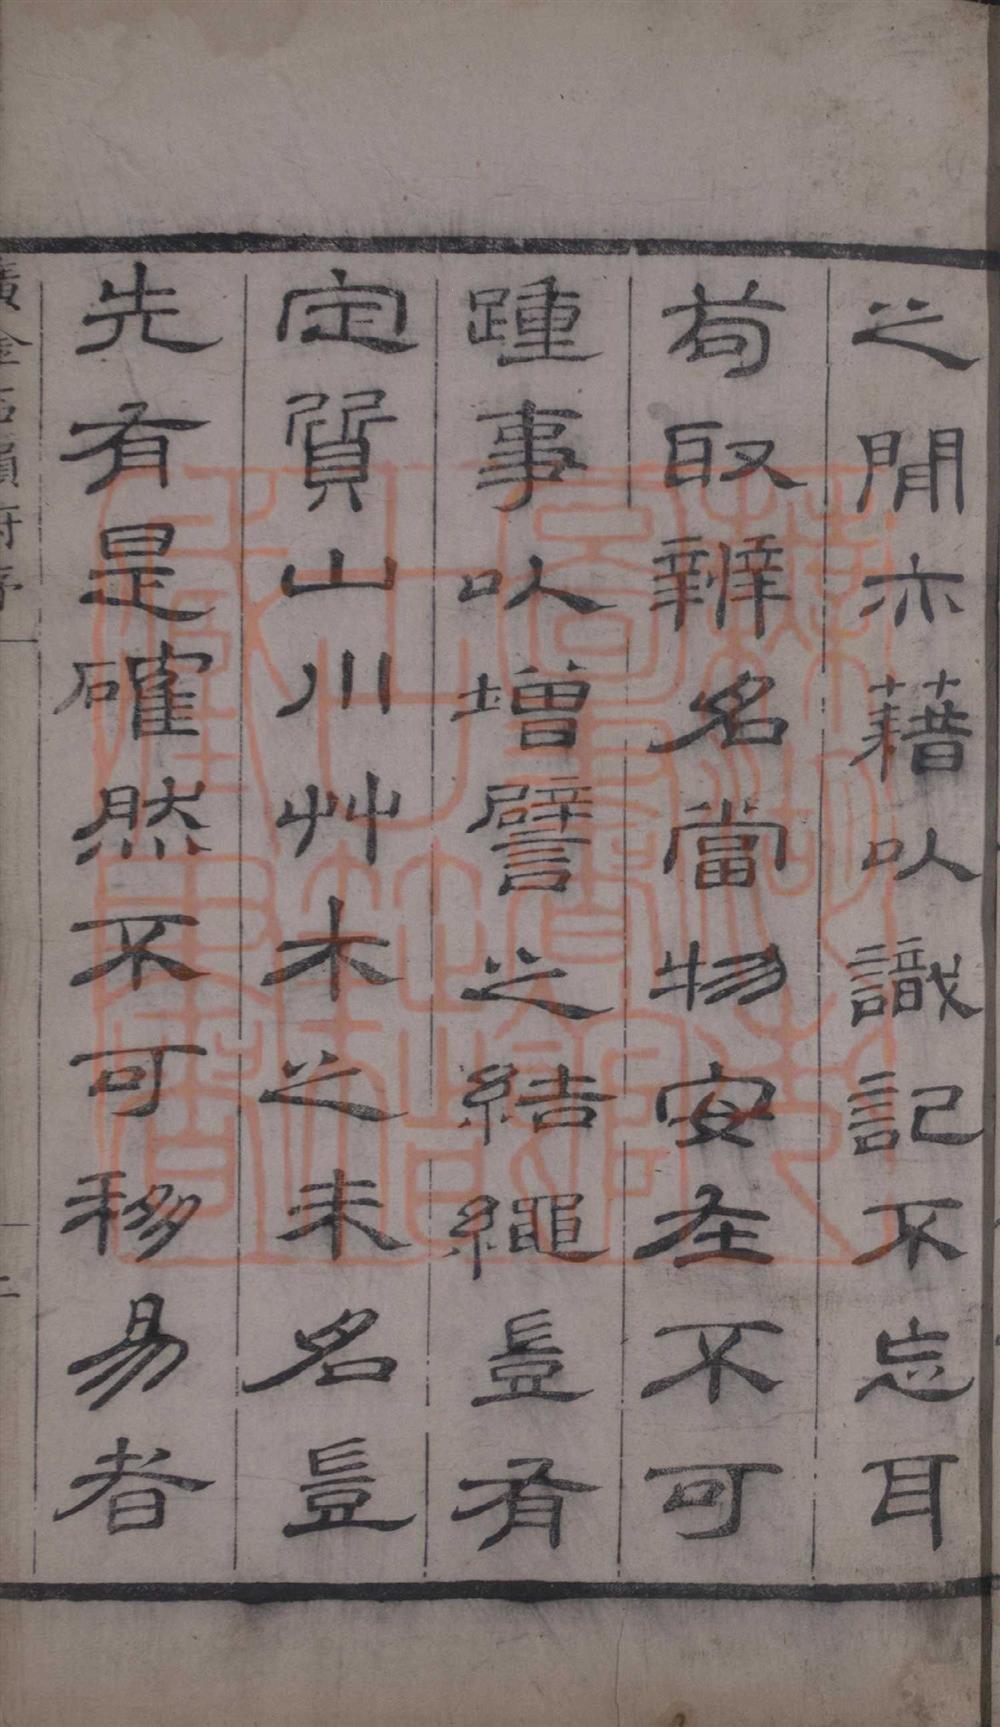 之間亦藉以識記不忘耳
苟取辨名當物安在不可
踵事以增譬之結繩豈有
定質山川艸木之未名豈
先有是確然不可移易者
廣金石韻府序
二